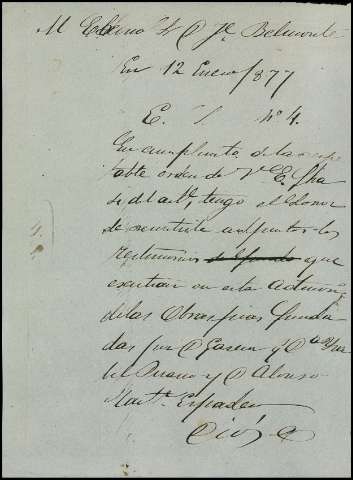 Al Excmo Sr D Je Belmonte
En 12 Enero/877
E. S. nº 4.
En cumplimto de la respe
table orden de V. E. fha
5 del actl, tengo el honor
de remitirle adjuntos los
testimonios que
existian en esta
de las Obras pias funda
das por D Garcia y Da
del Puerto y D Alonso
Martz
Dios